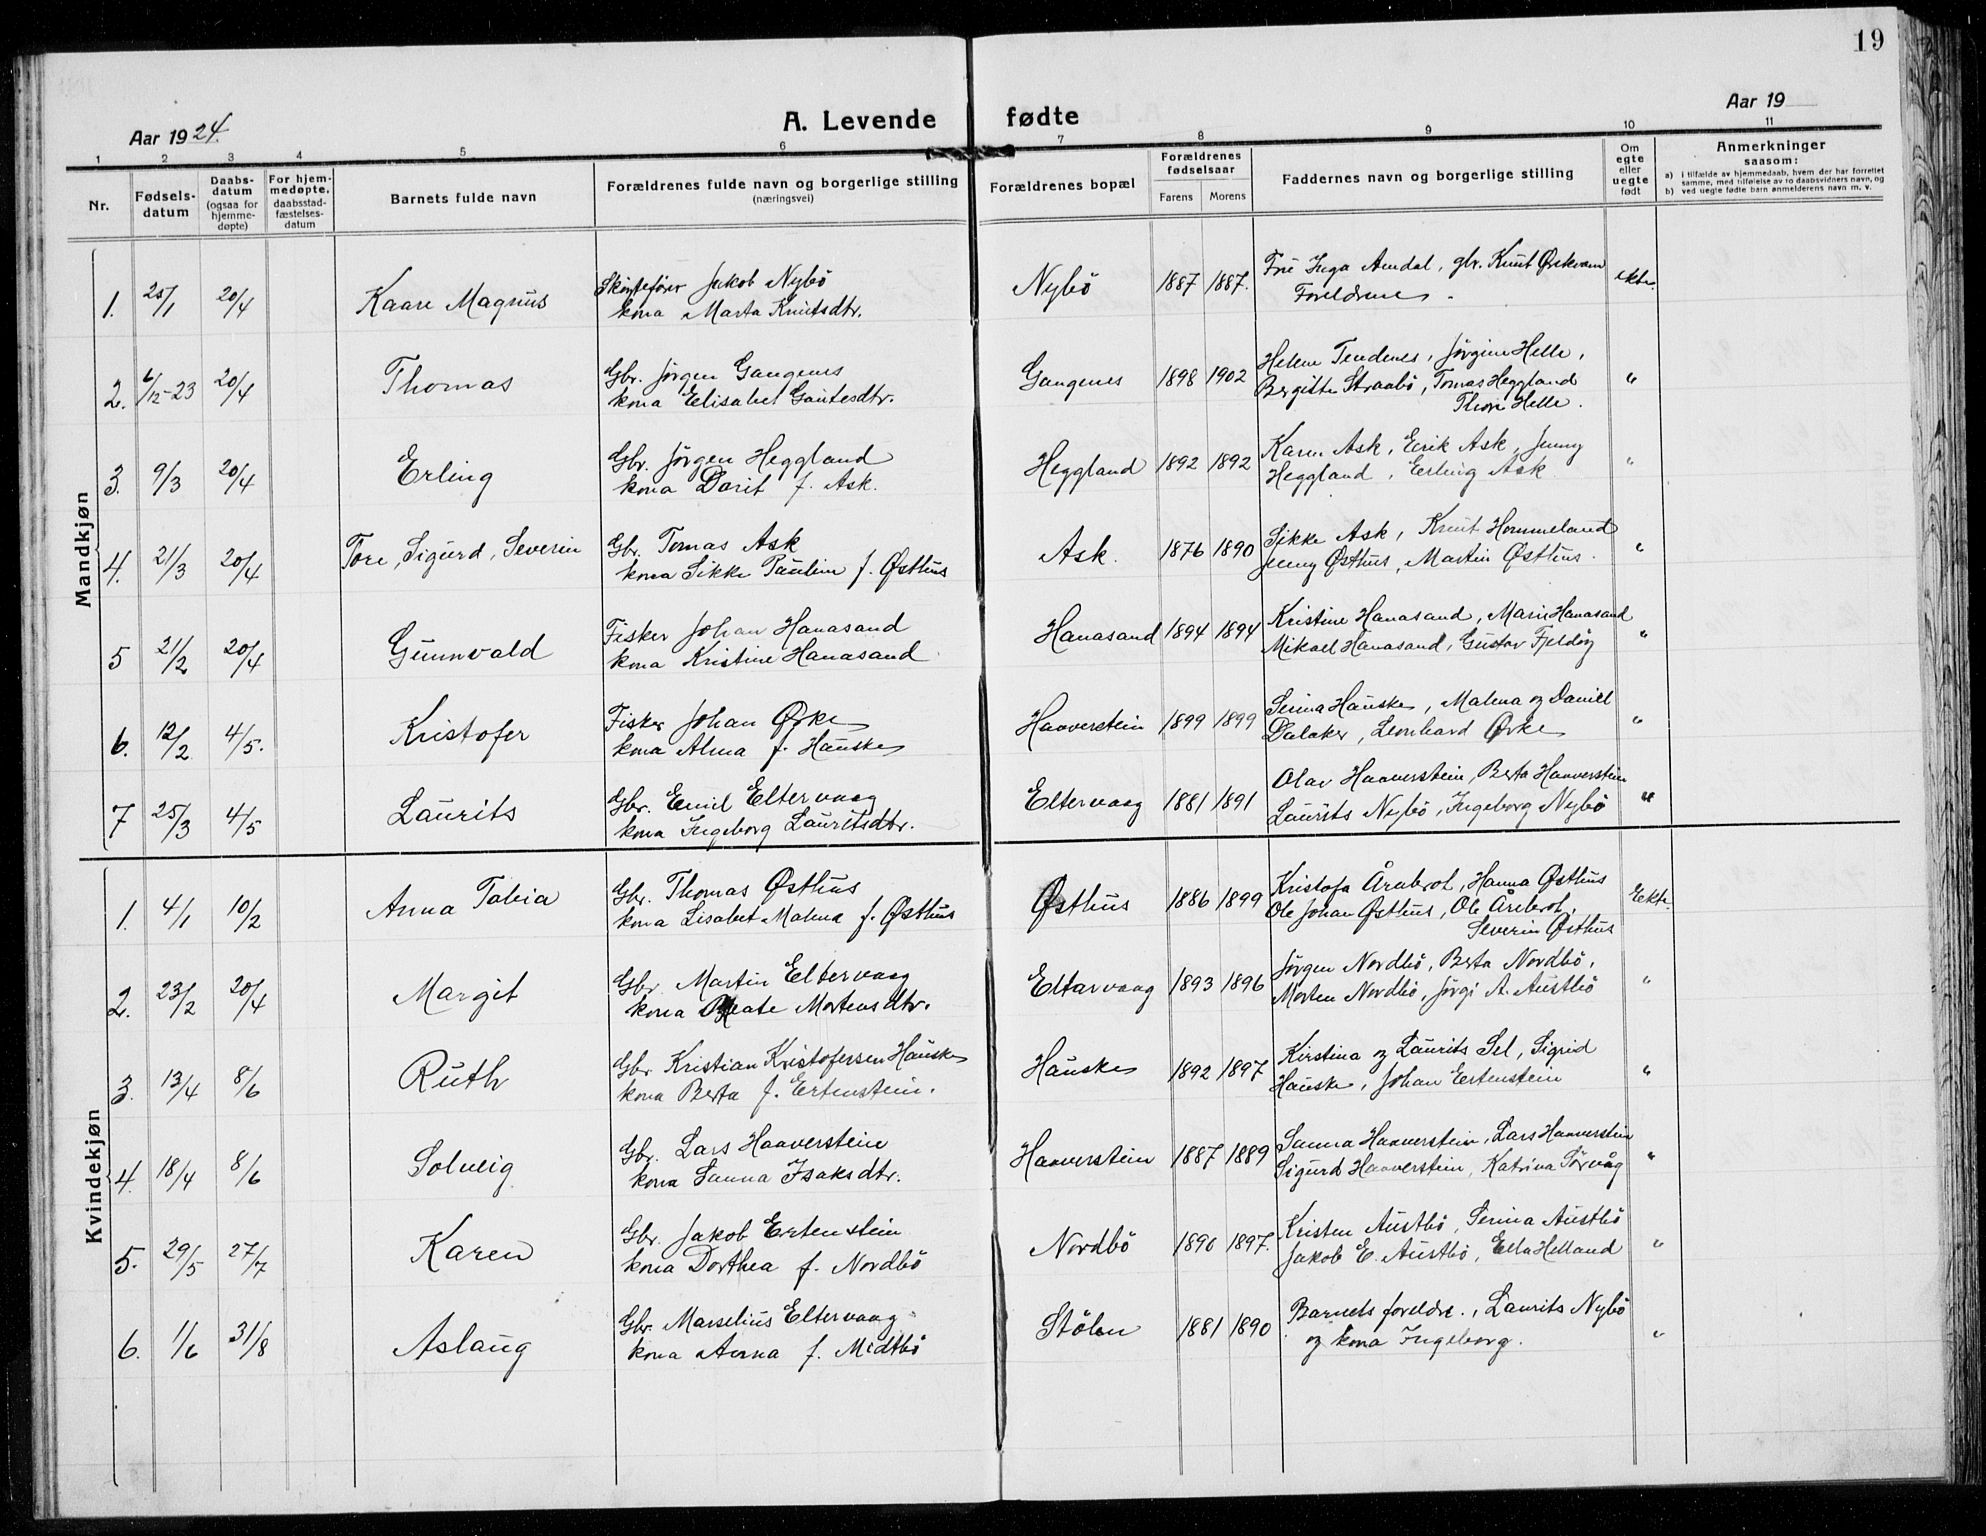 19
Aar 1924.
A. Levende fødte
Aar 19
1 2 3 4 5 6 7 8 9 10 11
Nr.
Fødsels-
datum
Daabs-
datum
(ogsaa for
hjemme-
døpte)
For hjem-
medøpte,
daabsstad-
fæstelses-
datum
Barnets fulde navn
Forældrenes fulde navn og borgerlige stilling
(næringsvei)
Forældrenes bopæl
Forældrenes
fødselsaar
Farens Morens
Faddernes navn og borgerlige stilling
Om
egte
eller
uegte
født
Anmerkninger
saasom:
a) i tilfælde av hjemmedaab, hvem der har forrettet
samme, med tilføielse av to daabsvidners navn, og
b) ved uegte fødte barn anmelderens navn m. v.
Mandkjøn
1. 25/1 20/4 Kaare Magnus
Jakob Nybö
kona Marta Knutsdtr.
Nybö 1887 1887.
Inga gbr. Knut
Foreldrene.
ekte.
2. 6/12-23 20/4 Thomas
Gbr. Jörgen Gangenes
kona Elisabet Gautesdtr.
Gangenes 1898 1902
Helene Tendenes, Jörgine Helle,
Bergitte Straabö, Tomas Heggland
Thore Helle.
"
3. 9/3 20/4 Erling
Gbr. Jörgen Heggland
kona Dorit f. Ask.
Heggland 1892 1892
Karen Ask, Eirik Ask, Jenny
Heggland, Erling Ask
"
4. 21/3 20/4 Tore, Sigurd, Severin
Gbr. Tomas Ask
kona Sikke Pauline f. Østhus
Ask. 1876 1890
Sikke Ask, Knut Hommeland
Jenny Østhus, Martin Østhus.
"
5 21/2 20/4 Gunnvald
Fisker Johan Hanasand
kona Kristine Hanasand
Hanasand 1894 1894
Kristine Hanasand, Marie Hanasand
Mikael Hanasand, Gustav Fjeldöy
"
6. 12/2 4/5. Kristofer
Fisker Johan Ørke
kona Alma f. Hauske
Haaverstein 1899 1899
Serina Hauske, Malena og Daniel
Dalaker, Leonhard Ørke
"
7 25/3 4/5 Laurits
Gbr. Emil Eltervaag
kona Ingeborg Lauritsdtr.
Eltervaag 1881 1891
Olav Haaverstein, Berta Haaverstein
Laurits Nybö, Ingeborg Nybö
"
Kvindekjøn
1. 4/1 10/2 Anna Tobia
Gbr. Thomas Østhus
kona Lisabet Malena f. Østhus
Østhus 1886 1899
Kristofa Årebrot, Hanna Østhus
Ole Johan Østhus, Ole Årebrot,
Severin Østhus
Ekte.
2. 23/2 20/4 Margit
Gbr. Martin Eltervaag
kona Mortensdtr.
Eltarvaag 1893 1896
Jörgen Nordbö, Berta Nordbö,
Morten Nordbö, Jörgi A. Austbö
"
3. 13/4 8/6 Ruth
Gbr Kristian Kristofersen Hauske
kona Berta f. Ertenstein.
Hauske 1892 1897
Kirstina og Laurits Sel, Sigrid
Hauske, Johan Ertenstein
"
4. 18/4 8/6 Solveig
Gbr. Lars Haaverstein
kona Sanna Isaksdtr.
Haaverstein 1887 1889
Sanna Haaverstein, Lars Haaverstein
Sigurd Haaverstein, Katrina Sörvåg
"
5. 29/5 27/7 Karen
Gbr. Jakob Ertenstein
kona Dorthea f. Nordbö
Nordbö 1890 1897.
Kristen Austbö, Serina Austbö
Jakob E. Austbö, Ella Helland
"
6. 1/6 31/8 Aslaug
Gbr. Marselius Eltervaag
kona Anna f. Midtbö
Stölen 1881 1890
Barnets foreldre., Laurits Nybö
og kona Ingeborg.
"